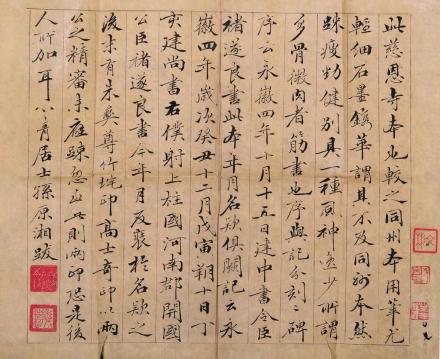 此慈恩寺本也較之同州本用筆尤
輕細石墨鐫華謂其不及同州本然
疎瘦勁健別具一種風神遠少所謂
多骨微肉者筋書也序與記分刻二碑
序云永徽四年十月十五日建中書令臣
褚遂良書此本年月名欵俱闕記云永
徽四年歲次癸丑十二月戊寅朔十日丁
亥建尚書右僕射上柱國河南郡開國
公臣褚遂良書今年月反裝於名欵之
後末有朱奐尊竹垞印高士奇印以兩
公之精審未應疎忽至此則兩印恐是後
人所加耳心青居士孫原湘跋